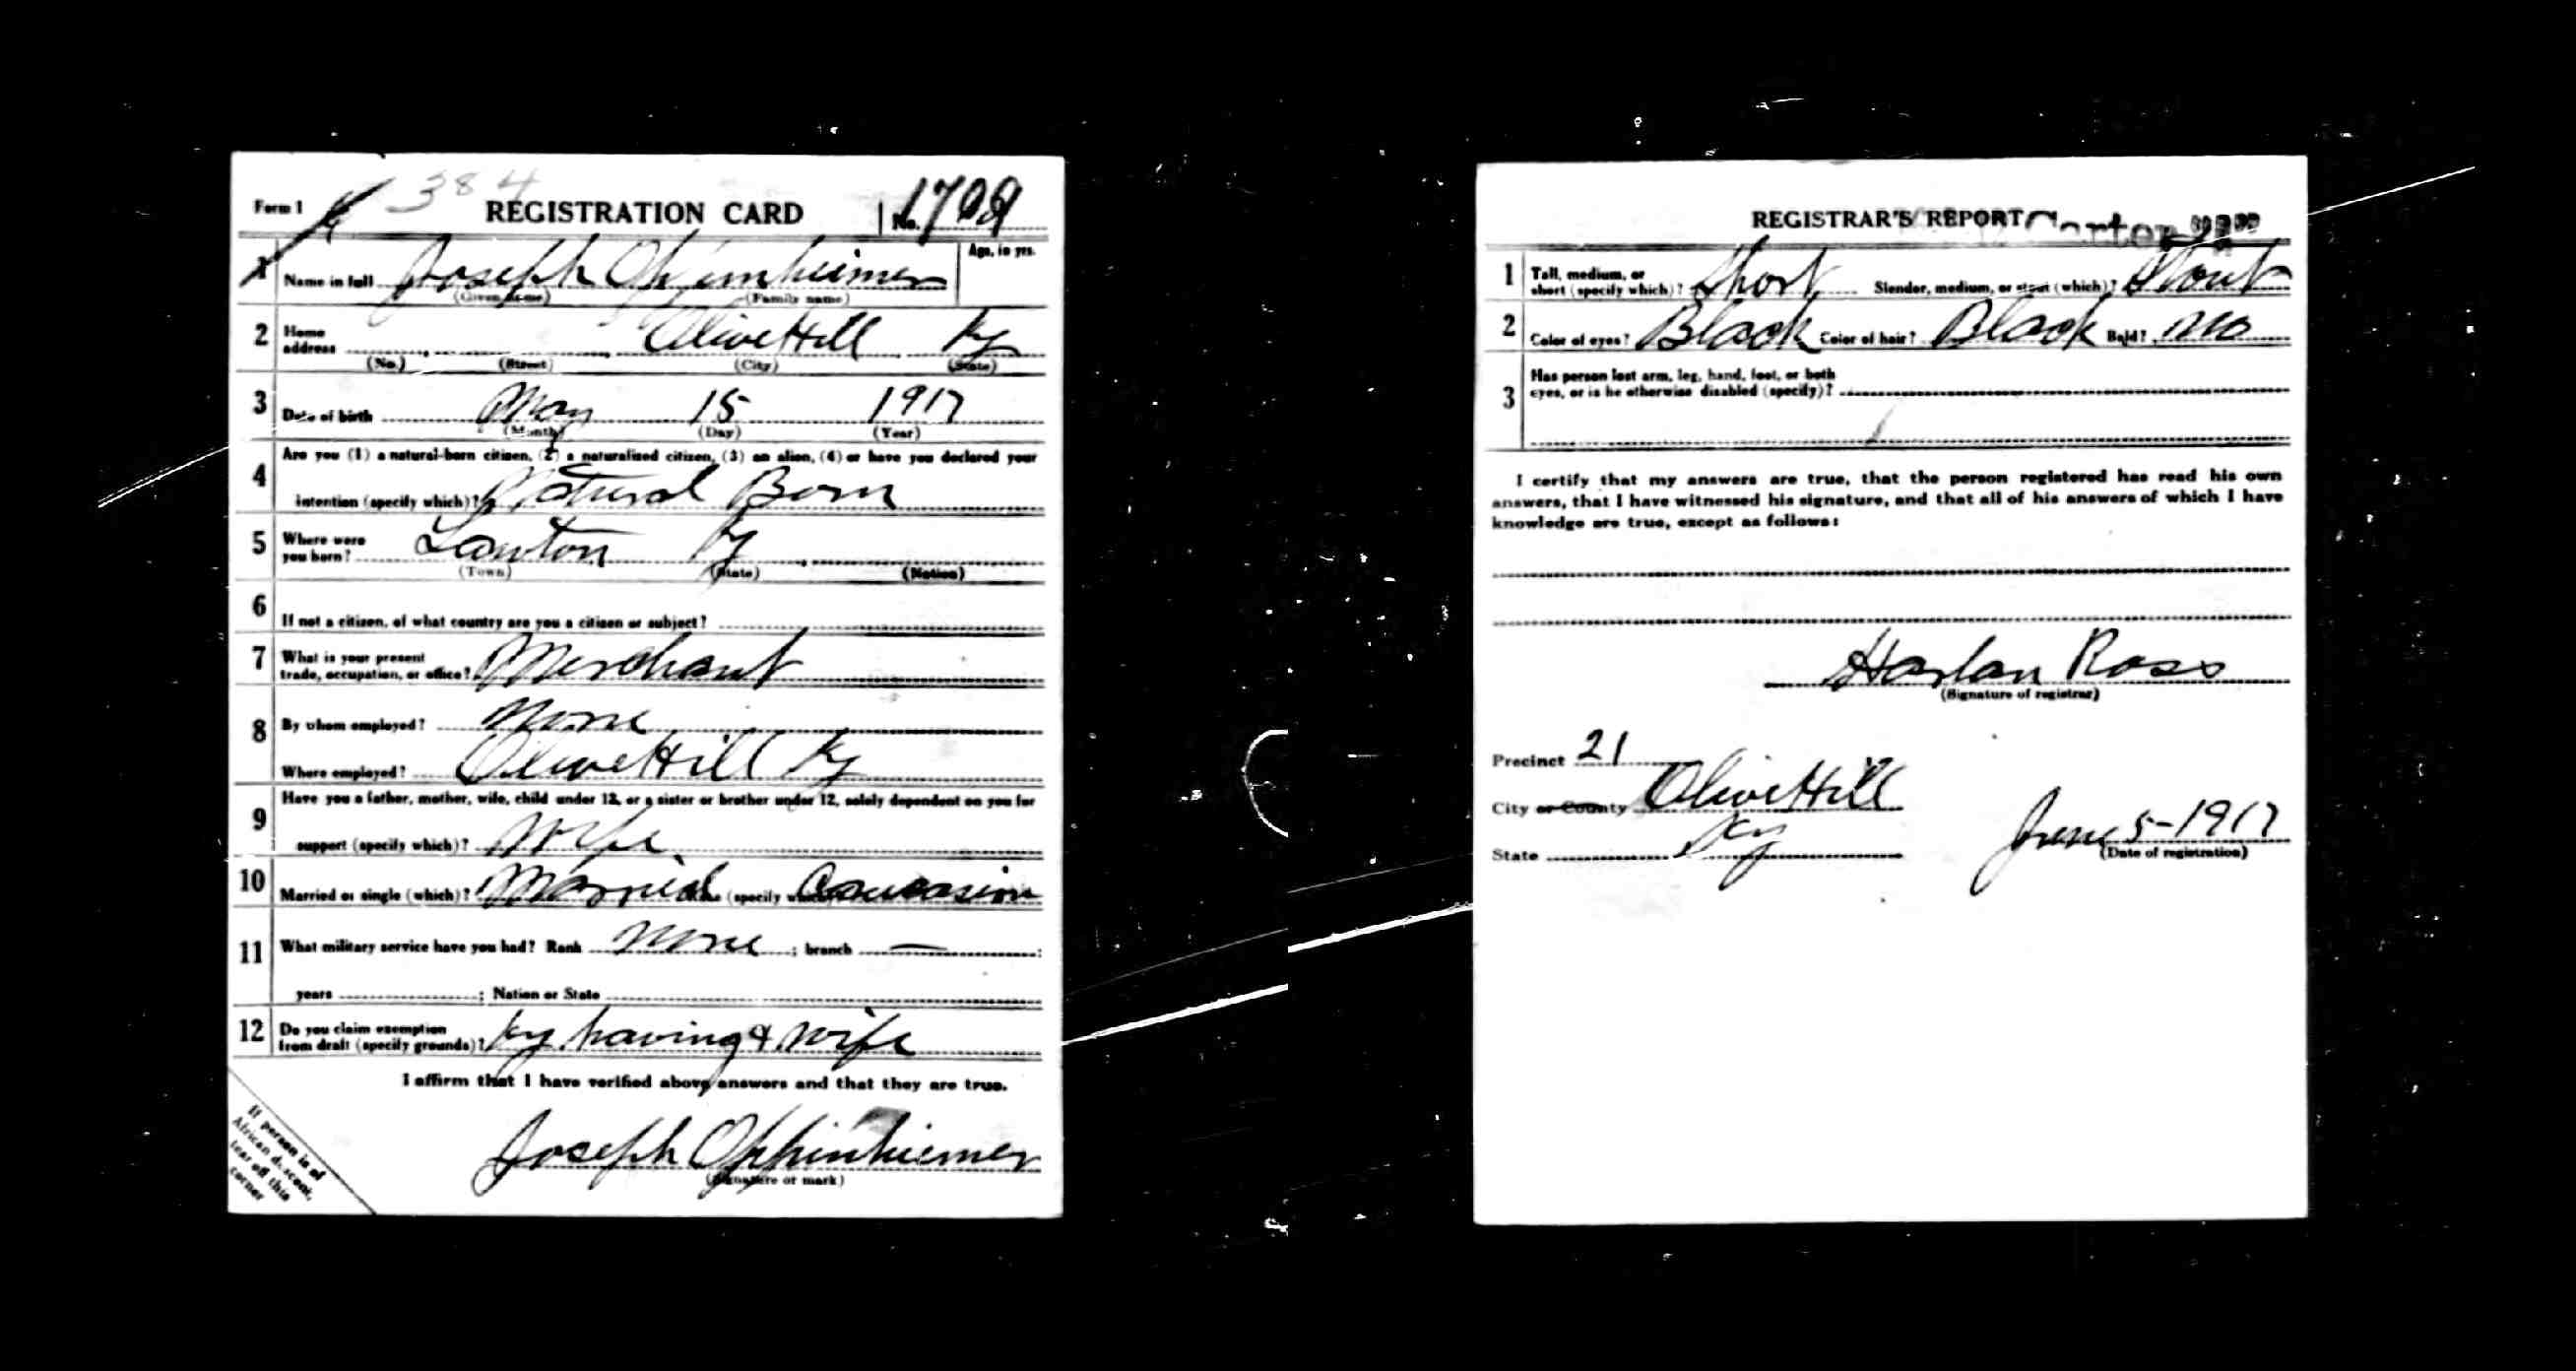 384
Form 1 REGISTRATION CARD No. 1709
Age, in yrs.
1 Name in full Joseph Oppinheimer
(Given name) (Family name)
2 Home address Olive Hill Ky
(No.) (Street) (City) (State)
3 Date of birth May 15 1917
(Month) (Day) (Year)
4 Are you (1) a natural-born citizen, (2) a naturalized citizen, (3) an alien, (4) or have you declared your
intention (specify which)? Natural Born
5 Where were
you born? Lawton Ky
(Town) (State) (Nation)
6 If not a citizen, of what country are you a citizen or subject?
7 What is your present
trade, occupation, or office? Merchant
8 By whom employed? None
Where employed? Olive Hill Ky
9 Have you a father, mother, wife, child under 12, or a sister or brother under 12, solely dependent on you for
support (specify which)? Wife
10 Married or single (which)? Married Race (specify which) Caucasian
11 What military service have you had? Rank None ; branch — ;
years ; Nation or State
12 Do you claim exemption
from draft (specify grounds)? having a wife
I affirm that I have verified above answers and that they are true.
Joseph Oppinhiemer
(Signature or mark)
If person is of
African descent,
tear off this
corner
REGISTRAR'S REPORT Carter
1 Tall, medium, or
short (specify which)? Short Slender, medium, or stout (which)? Stout
2 Color of eyes? Black Color of hair? Black Bald? No
3 Has person lost arm, leg, hand, foot, or both
eyes, or is he otherwise disabled (specify)?
I certify that my answers are true, that the person registered has read his own
answers, that I have witnessed his signature, and that all of his answers of which I have
knowledge are true, except as follows:
Harlan Ross
(Signature of registrar)
Precinct 21
City or County Olive Hill
State Ky
June 5-1917
(Date of registration)